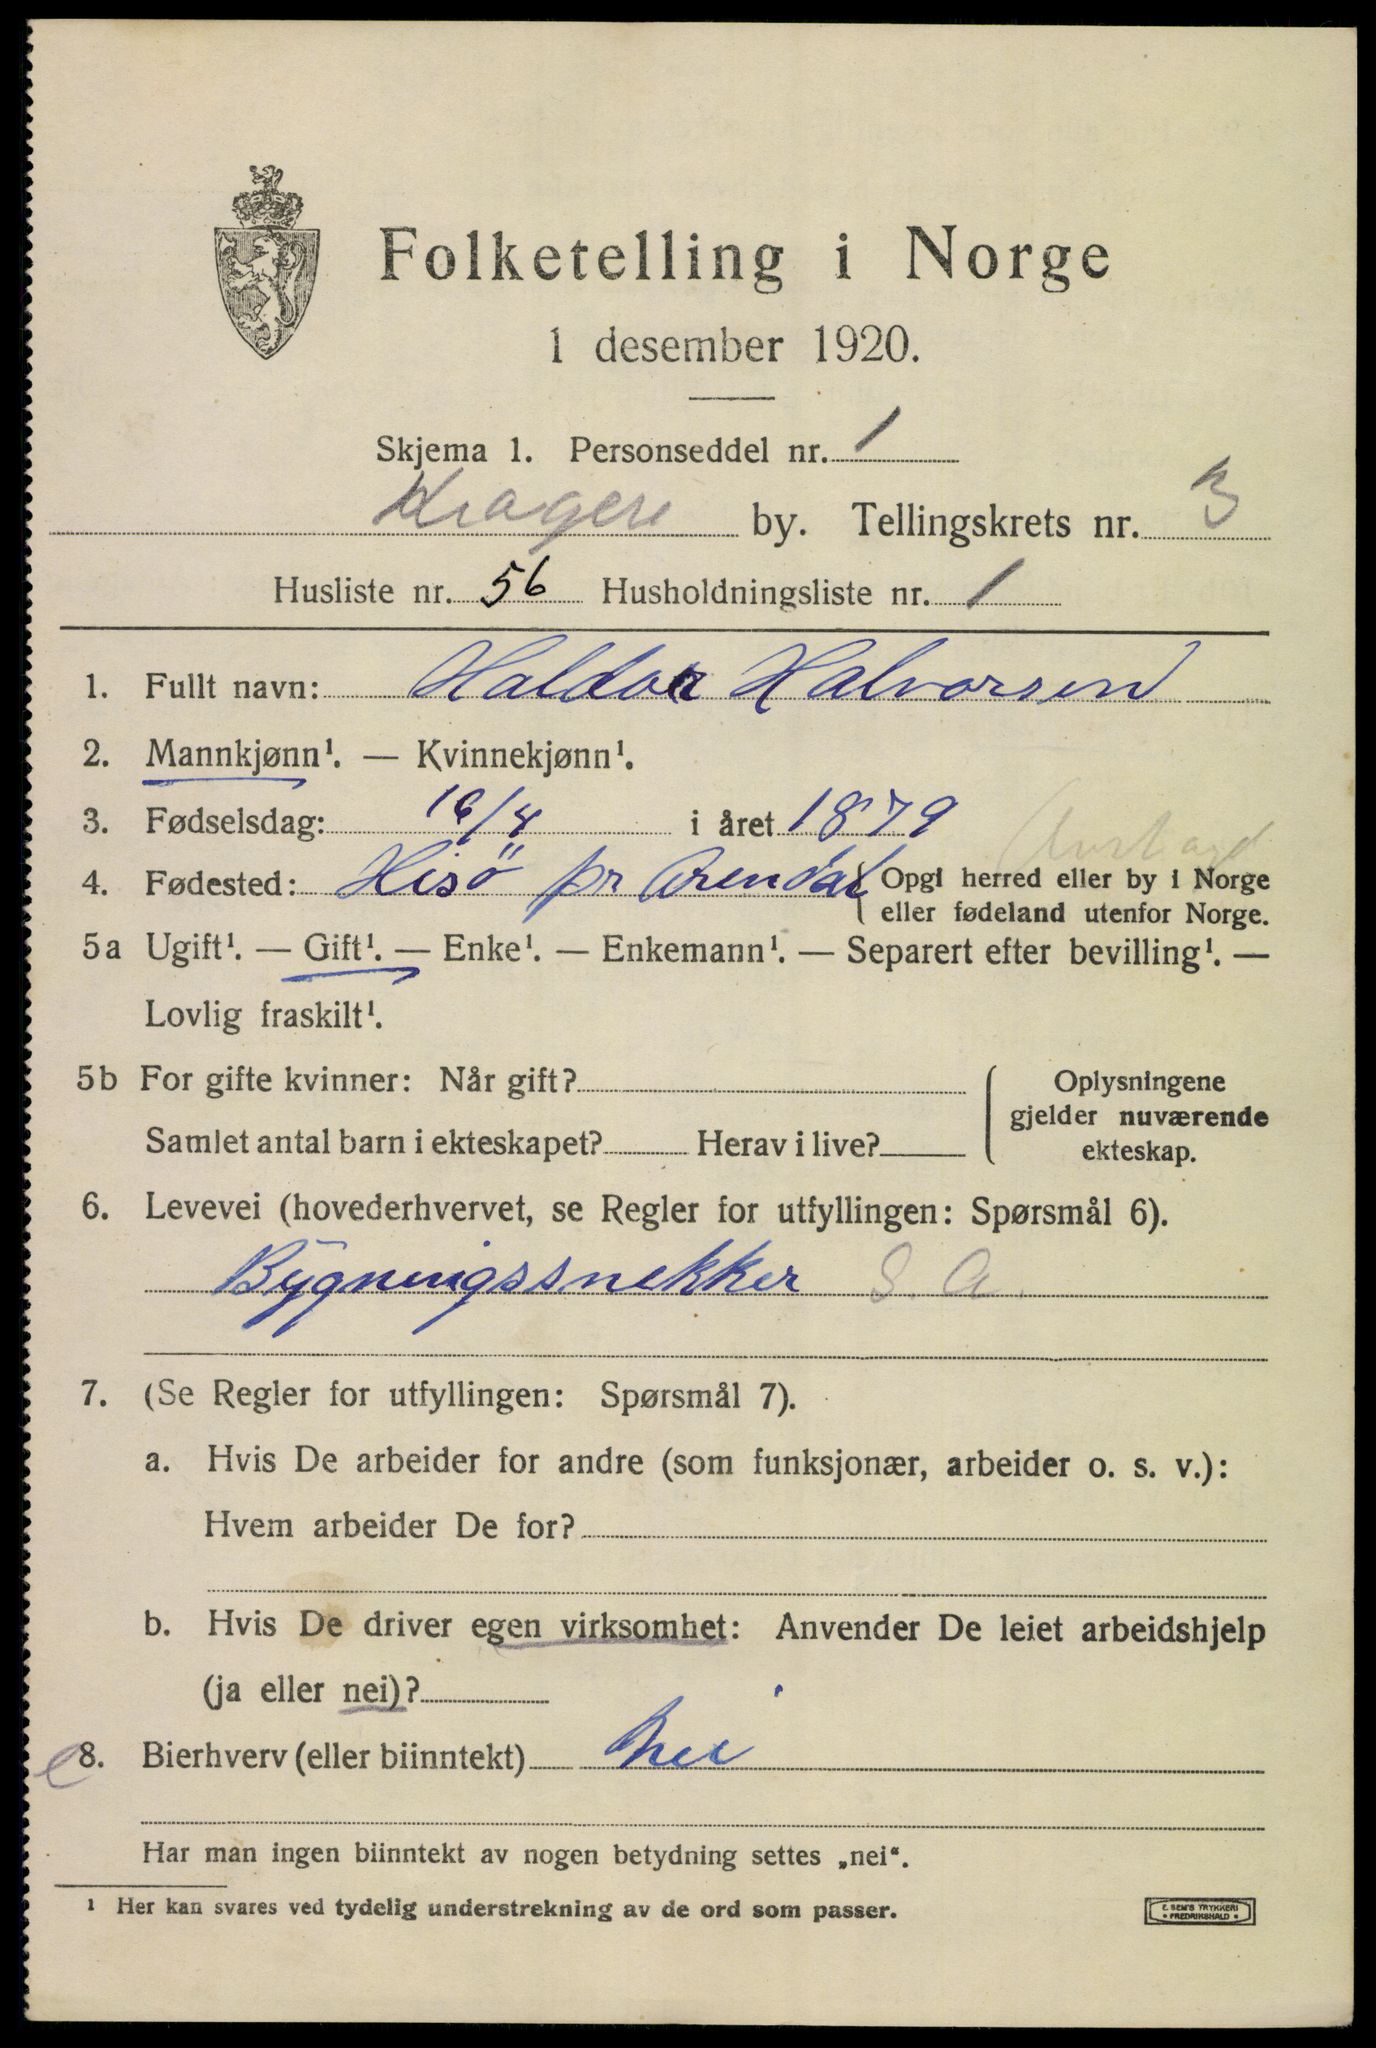 Folketelling i Norge
1 desember 1920.
Skjema 1. Personseddel nr. 1
Kragerø by. Tellingskrets nr. 3
Husliste nr. 56 Husholdningsliste nr. 1
1. Fullt navn: Haldor Halvorsen
2. Mannkjønn¹. — Kvinnekjønn¹.
3. Fødselsdag: 16/4 i året 1879
4. Fødested: Hisö pr Arendal { Opgi herred eller by i Norge
eller fødeland utenfor Norge.
5a Ugift¹. — Gift¹. — Enke¹. — Enkemann¹. — Separert efter bevilling¹. —
Lovlig fraskilt¹.
5b For gifte kvinner: Når gift?
Samlet antal barn i ekteskapet? Herav i live?
Oplysningene
gjelder nuværende
ekteskap.
6. Levevei (hovederhvervet, se Regler for utfyllingen: Spørsmål 6).
Bygningssnekker S. A.
7. (Se Regler for utfyllingen: Spørsmål 7).
a. Hvis De arbeider for andre (som funksjonær, arbeider o. s. v.):
Hvem arbeider De for?
b. Hvis De driver egen virksomhet: Anvender De leiet arbeidshjelp
(ja eller nei)?
8. Bierhverv (eller biinntekt) Nei
Har man ingen biinntekt av nogen betydning settes „nei“.
¹ Her kan svares ved tydelig understrekning av de ord som passer.
E. SEM'S TRYKKERI
• FREDRIKSHALD •